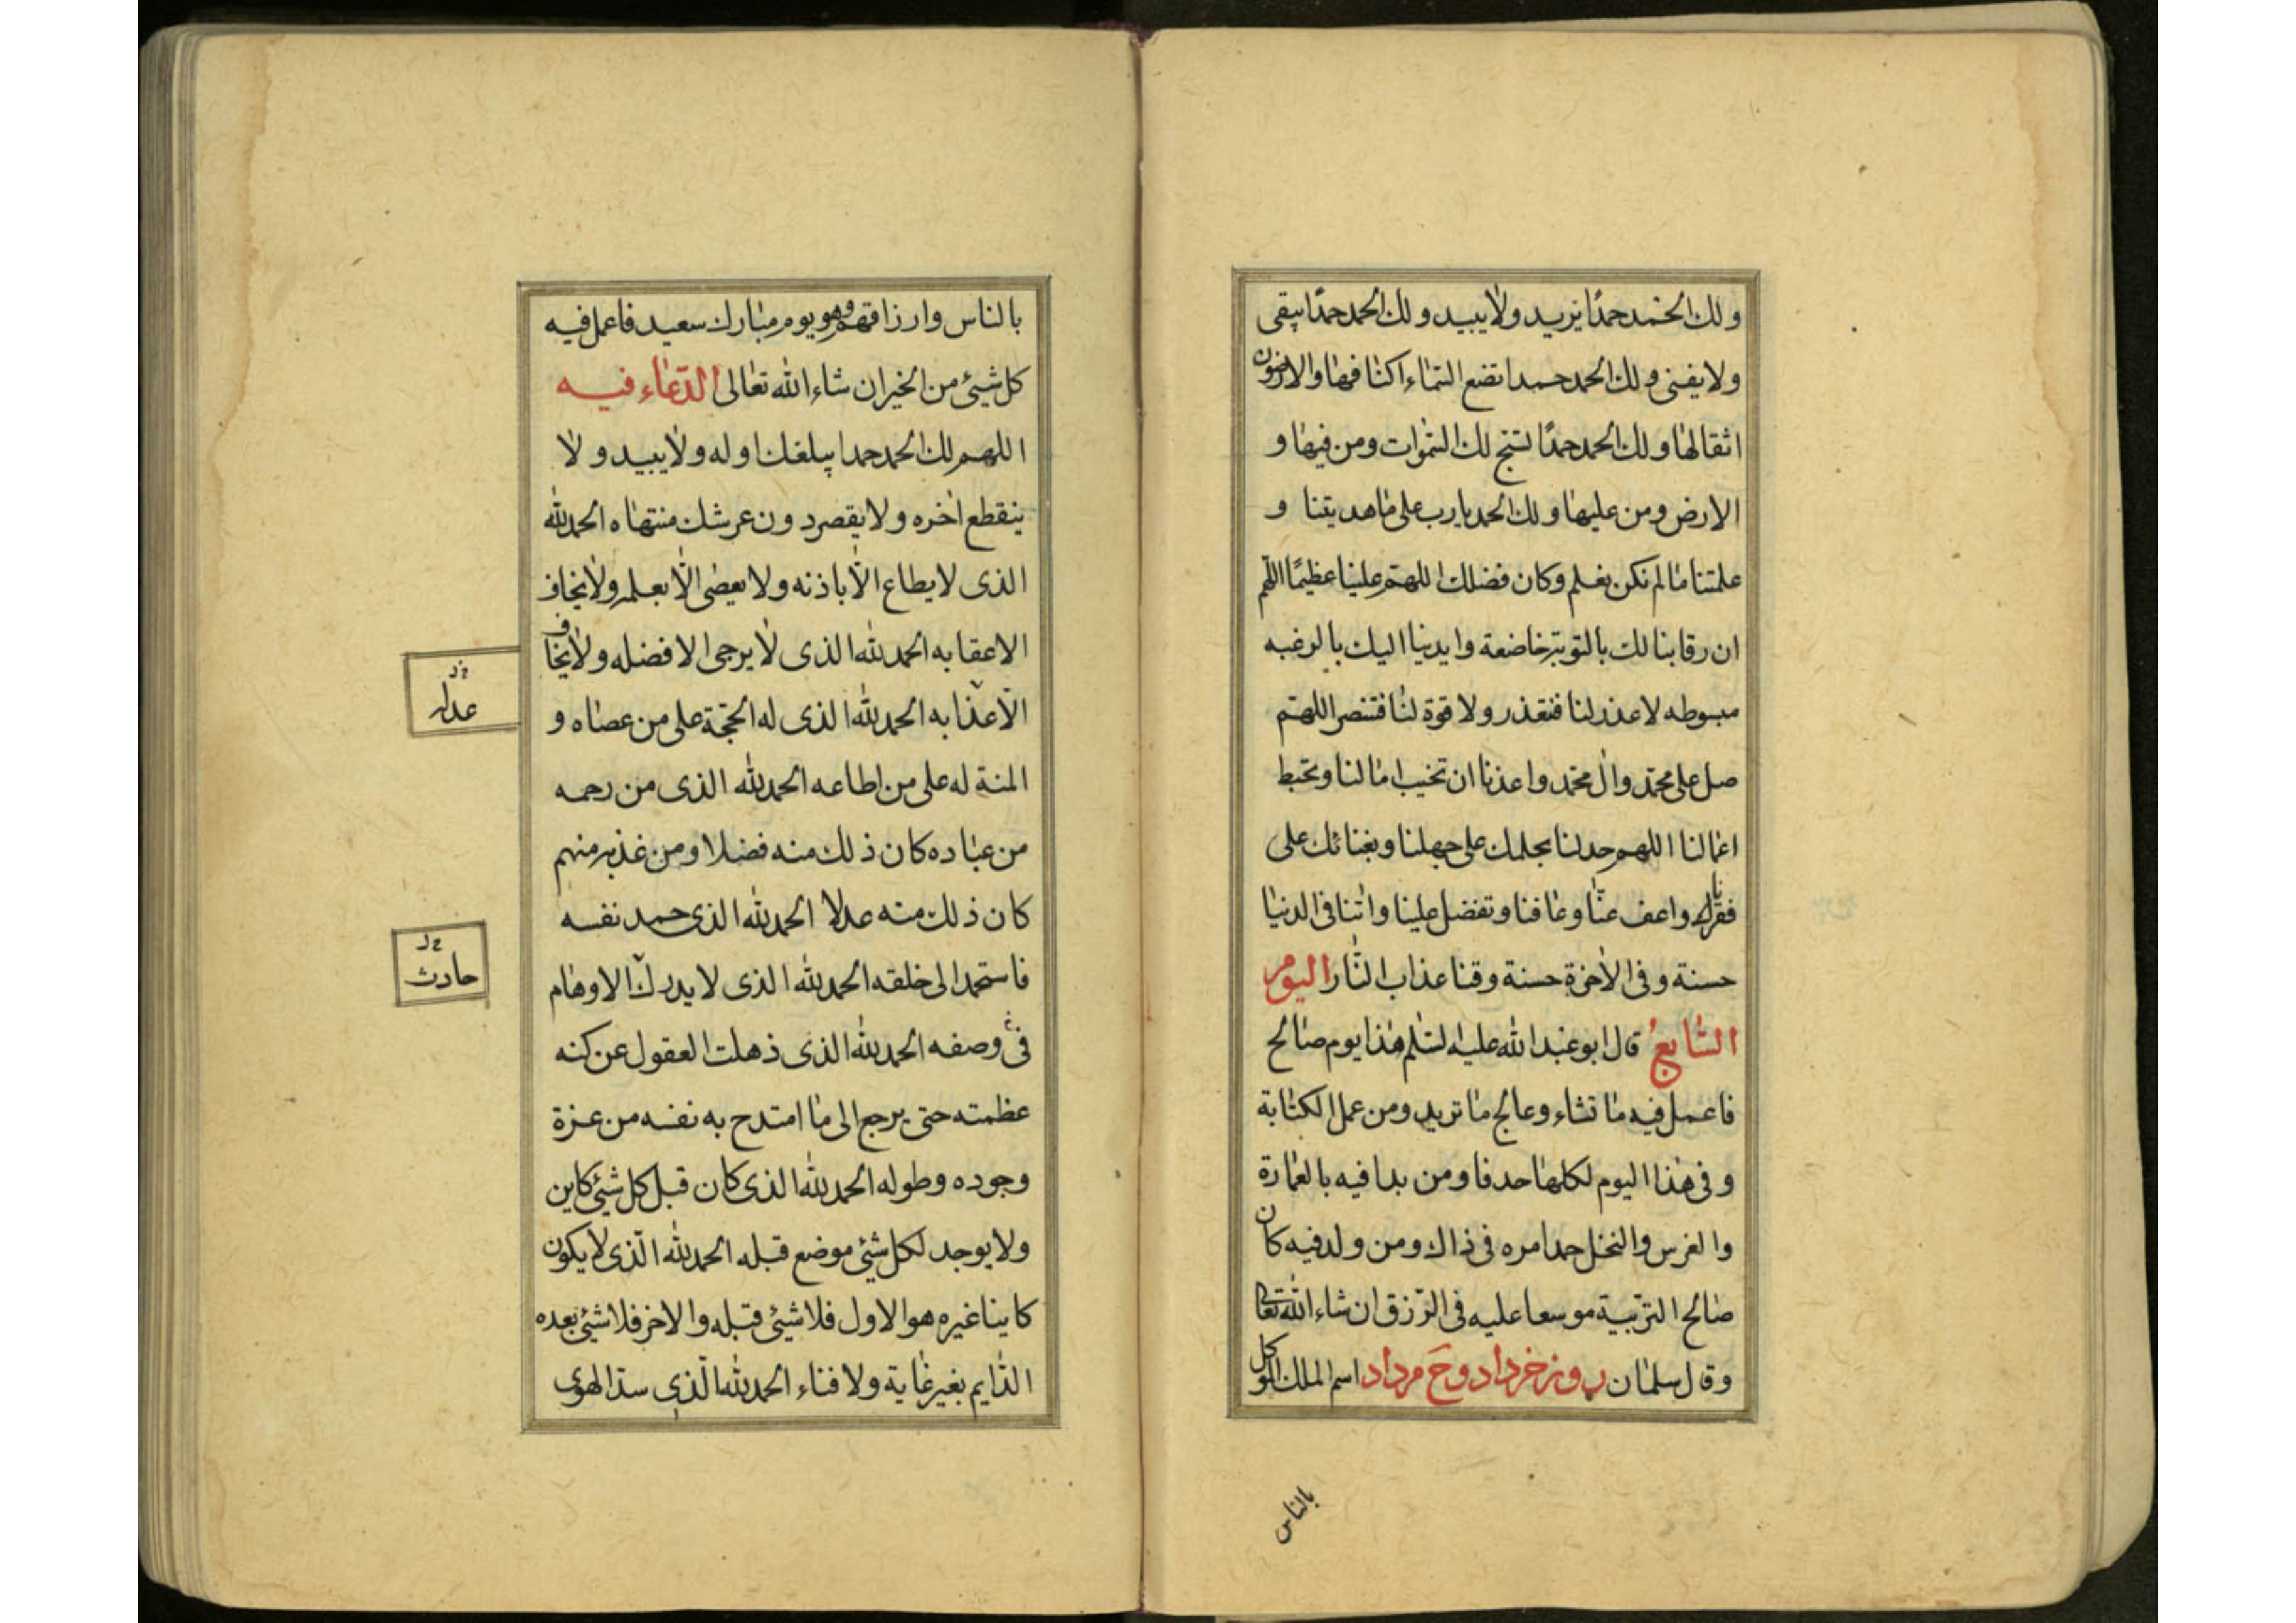 ولك الحمد حمدًا يزيد ولا يبيد ولك الحمد حمدًا يبقى
ولا يفنى ولك الحمد حمدا تضع السماء اكنافها والارضون
اثقالها ولك الحمد حمدًا تسبح لك السموات ومن فيها و
الارض ومن عليها ولك الحمد يا رب على ما هديتنا و
علمتنا ما لم نكن نعلم وكان فضلك اللهم علينا عظيمًا اللهم
ان رقابنا لك بالتوبة خاضعة وايدينا اليك بالرغبه
مبسوطه لا عذر لنا فنعتذر ولا قوة لنا فننتصر اللهم
صل على محمد وال محمد واعذنا ان تخيب امالنا وتحبط
اعمالنا اللهم جد لنا بحلمك على جهلنا وبغنائك على
فقرنا واعف عنا وعافنا وتفضل علينا واتنا فى الدنيا
حسنة وفى الاخرة حسنة وقنا عذاب النار اليوم
السابع قال ابو عبد الله عليه السلم هذا يوم صالح
فاعمل فيه ما تشاء وعالج ما تريد ومن عمل الكتابة
وفى هذا اليوم لكلها حدفا ومن بدا فيه بالعمارة
والغرس والنخل حمد امره فى ذاك ومن ولد فيه كان
صالح التربية موسعا عليه فى الرزق ان شاء الله تعالى
وقال سلمان روز خرداد وح مرداد اسم الملك الموكل
بالناس
بالناس وارزاقهم وهو يوم مبارك سعيد فاعمل فيه
كل شيئ من الخير ان شاء الله تعالى الدعاء فيه
اللهم لك الحمد حمدا يبلغك اوله ولا يبيد ولا
ينقطع اخره ولا يقصر دون عرشك منتهاه الحمد لله
الذى لا يطاع الا باذنه ولا يعصى الا بعلمه ولا يخاف
الا عقابه الحمد لله الذى لا يرجى الا فضله ولا يخاف
الا عذابه الحمد لله الذى له الحجة على من عصاه و
المنة له على من اطاعه الحمد لله الذى من رحمه
من عباده كان ذلك منه فضلا ومن عذبه منهم
كان ذلك منه عدلا الحمد لله الذى حمد نفسه
فاستحمد الى خلقه الحمد لله الذى لا يدرك الاوهام
فى وصفه الحمد لله الذى ذهلت العقول عن كنه
عظمته حتى يرجع الى ما امتدح به نفسه من عزة
وجوده وطوله الحمد لله الذى كان قبل كل شيئ كاين
ولا يوجد لكل شيئ موضع قبله الحمد لله الذى لا يكون
كاينا غيره هو الاول فلا شيئ قبله والاخر فلا شيئ بعده
الدايم بغير غاية ولا فناء الحمد لله الذى سد الهوى
عدله
حادث